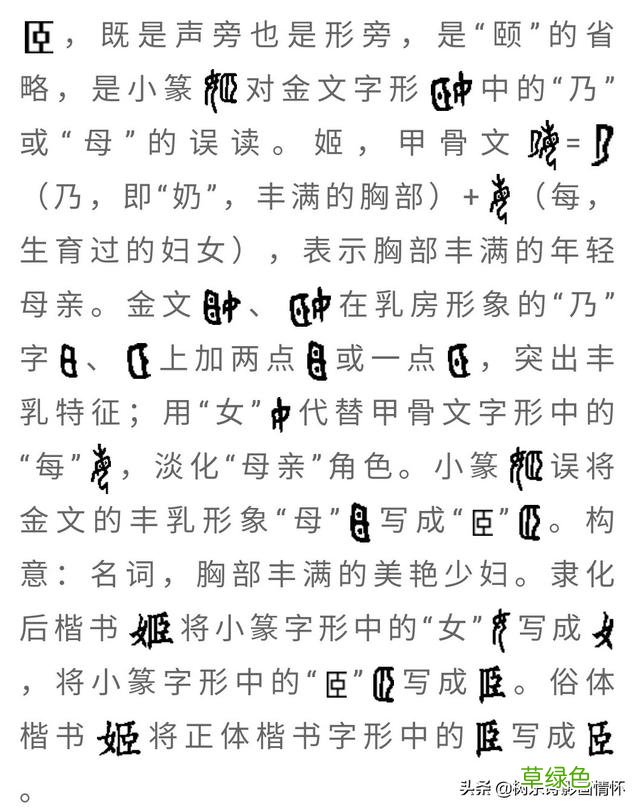 𦣞，既是声旁也是形旁，是“颐”的省
略，是小篆对金文字形中的“乃”
或“母”的误读。姬，甲骨文=
（乃，即“奶”，丰满的胸部）+（每，
生育过的妇女），表示胸部丰满的年轻
母亲。金文、在乳房形象的“乃”
字、上加两点或一点，突出丰
乳特征；用“女”代替甲骨文字形中的
“每”，淡化“母亲”角色。小篆误将
金文的丰乳形象“母”写成“𦣞”。构
意：名词，胸部丰满的美艳少妇。隶化
后楷书姬将小篆字形中的“女”写成女
，将小篆字形中的“𦣞”写成𦣞。俗体
楷书姬将正体楷书字形中的𦣞写成臣
。
草绿色
头条